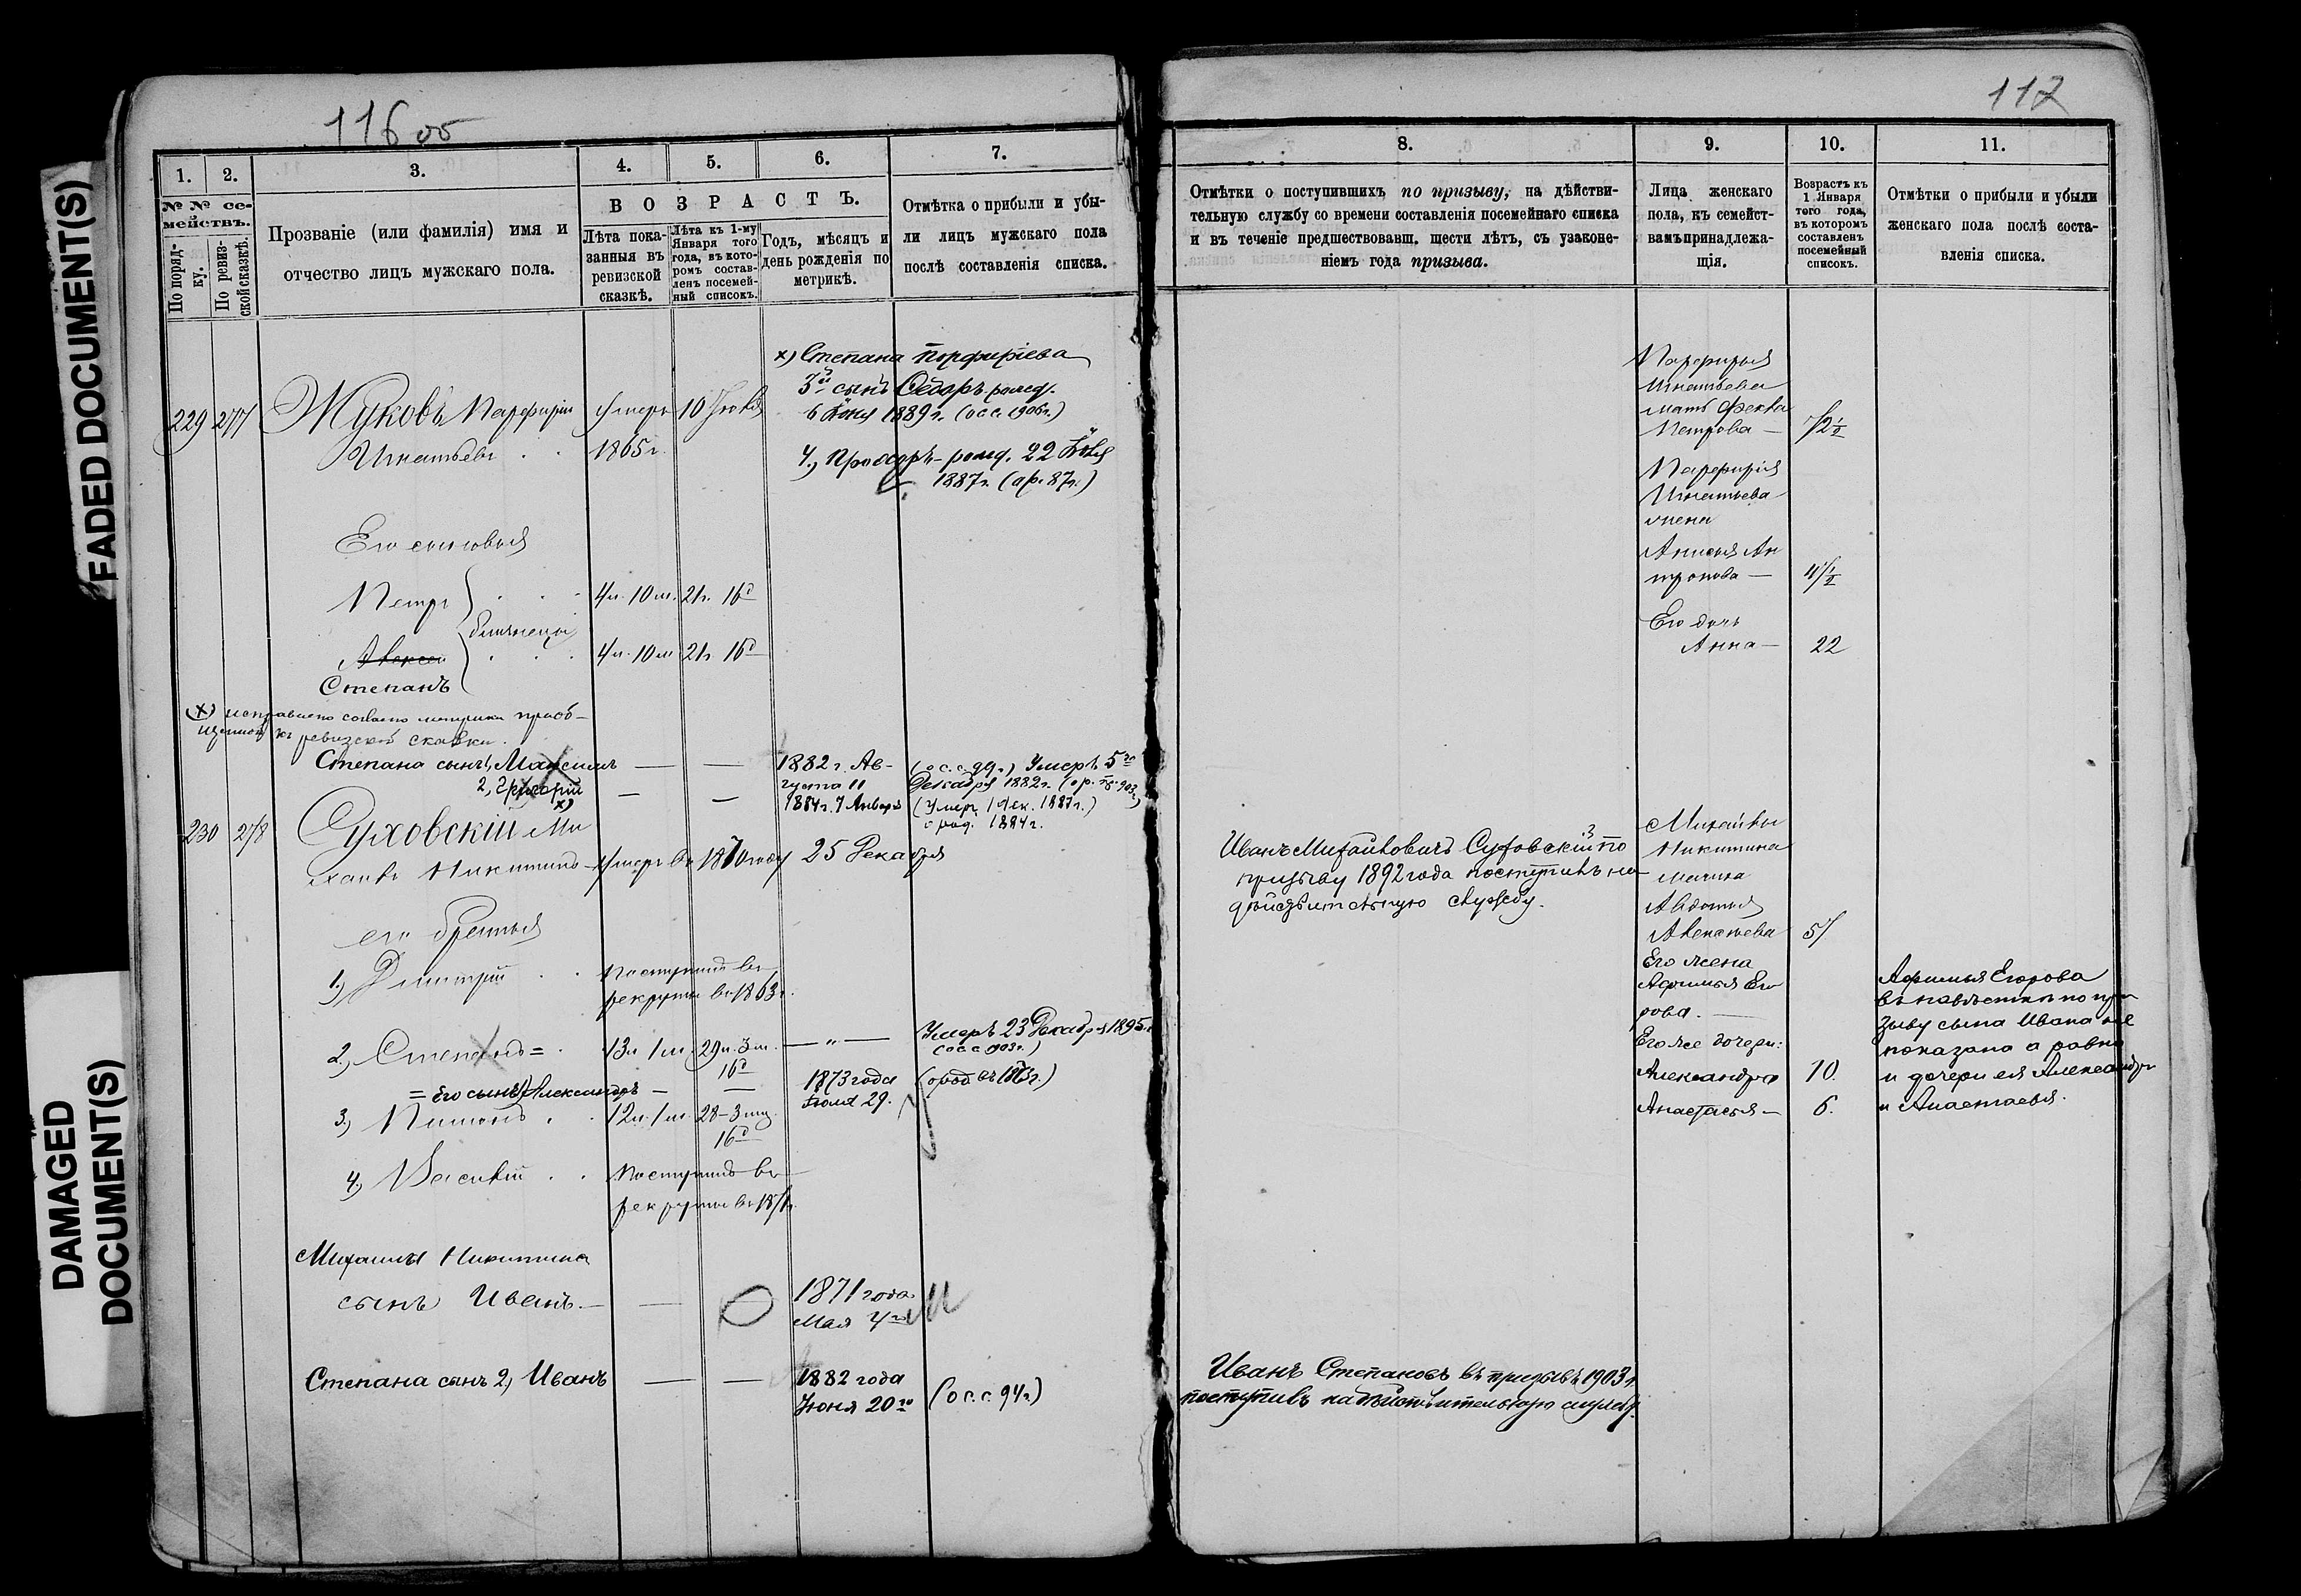 FADED DOCUMENT(S)
DAMAGED
DOCUMENT(S)
116 об
1.
2.
3.
4.
5.
6.
7.
№ № се-
мействъ.
По поряд-
ку.
По ревиз-
ской сказкѣ.
Прозваніе (или фамилія) имя и
отчество лицъ мужскаго пола.
ВОЗРАСТЪ.
Лѣта пока-
занныя въ
ревизской
сказкѣ.
Лѣта къ 1-му
Января того
года, въ кото-
ромъ состав-
ленъ посемей-
ный списокъ.
Годъ, мѣсяцъ и
день рожденія по
метрикѣ.
Отмѣтка о прибыли и убы-
ли лицъ мужскаго пола
послѣ составленія списка.
х) Степана Порфиріева
3й сынъ Ѳедоръ рожд.
6 1889 г. (ос.с. 1906г.)
229 277 Жуковъ Парфирій умеръ 10
Игнатьевъ 1865 г.
4, Прохоръ рожд. 22
1887 г. (ар. 87г.)
Его сыновья
Петръ 4л. 10м. 21г. 16д
близнецы
Алексей 4л. 10м. 21г. 16д
Степанъ
(х) исправлено согласно метрики приоб-
щенной къ ревизской сказки.
Степана сынъ 1, Максимъ — — 1882 г. Ав-
густа 11
(ос.с. 99г.) Умеръ 5го
Декабря 1882г.
2, Григорій х) — — 1884г. 7 Января
(Умеръ 1 Дек. 1887г.)
1884г.
230 278 Суховскій Ми
хаилъ Никитинъ умеръ въ 1870 году 25 Декабря
его братья
1, Дмитрій поступилъ въ
рекруты въ 1863г.
2, Степанъ = 13л. 1м. 29л. 3м.
16д — " —
Умеръ 23 Декабря 1895г.
(ос.с. 903г.)
= Его сынъ 1) Александръ — — 1873 года
Іюля 29.
(о род. въ 1873г.)
3, Пименъ 12л. 1м. 28 – 3м.
16д
4, Василій Поступилъ въ
рекруты въ 1871г.
Михаила Никитина
сынъ Иванъ — — 1871 года
Мая 4го
Степана сынъ 2, Иванъ — — 1882 года
Іюня 20го (ос.с. 94г.)
117
8.
9.
10.
11.
Отмѣтки о поступившихъ по призыву, на дѣйстви-
тельную службу со времени составленія посемейнаго списка
и въ теченіе предшествовавш. шести лѣтъ, съ узаконе-
ніемъ года призыва.
Лица женскаго
пола, къ семейст-
вамъ принадлежа-
щія.
Возрастъ къ
1 Января
того года,
въ которомъ
составленъ
посемейный
списокъ.
Отмѣтки о прибыли и убыли
женскаго пола послѣ соста-
вленія списка.
Парфирья
Игнатьева
мать Фекла
Петрова — 72½
Парфирія
Игнатьева
жена
Анисья Ан
тропова — 41½
Его дочь
Анна — 22
Иванъ Михайловичъ Суховскій по
призыву 1892 года поступилъ на
дѣйствительную службу.
Михайлы
Никитина
мачиха
Авдотья
Алексѣева 51
Его жена
Афимья Его
рова. —
Его же дочери:
Александра 10.
Анастасья — 6.
Афимья Егорова
въ извѣстіи по при
зыву сына Ивана не
показана а равно
и дочери ея Александра
и Анастасья.
Иванъ Степановъ въ призывъ 1903 г.
поступилъ на дѣйствительную службу.